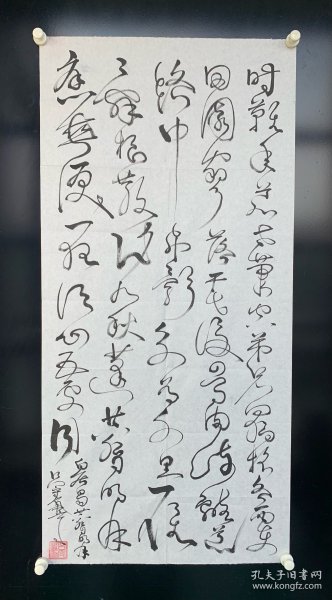 时难年荒世业空弟兄羁旅各西东
田园寥落干戈后骨肉流离道
路中吊影分为千里雁
辞根散作九秋蓬共看明月
应垂泪一夜乡心五处同
孔夫子旧书网
www.kongfz.com